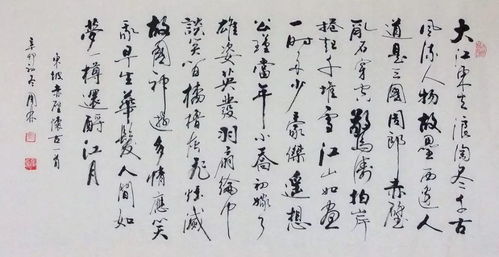 大江東去浪淘尽千古
風流人物故壘西邊人
道是三國周郎赤壁
亂石穿空驚濤拍岸
捲起千堆雪江山如畫
一時多少豪傑遙想
公瑾當年小喬初嫁了
雄姿英發羽扇綸巾
談笑間檣櫓灰飛煙滅
故國神遊多情應笑
我早生華髮人間如
夢一樽還酹江月
東坡赤壁懷古一首
辛卯初冬周